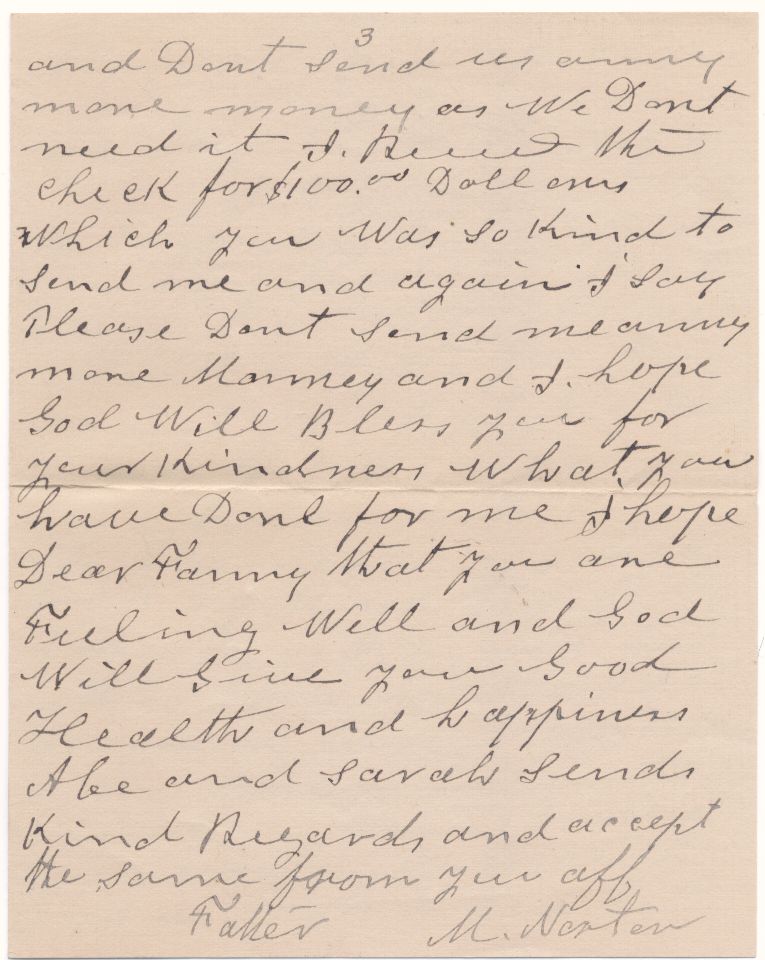 3
and Dont send us anny
more money as We Dont
need it I. Recued the
check for $100.00 Dollars
Which you Was so Kind to
send me and again I say
Please Dont send me anny
more Monney and I. hope
God Will Bless you for
your Kindness What you
have Done for me I hope
Dear Fanny that you are
Feeling Well and God
Will Give you Good
Health and happiness
Abe and Sarah Sends
Kind Regards and accept
the same from you aff
Father M. Norton